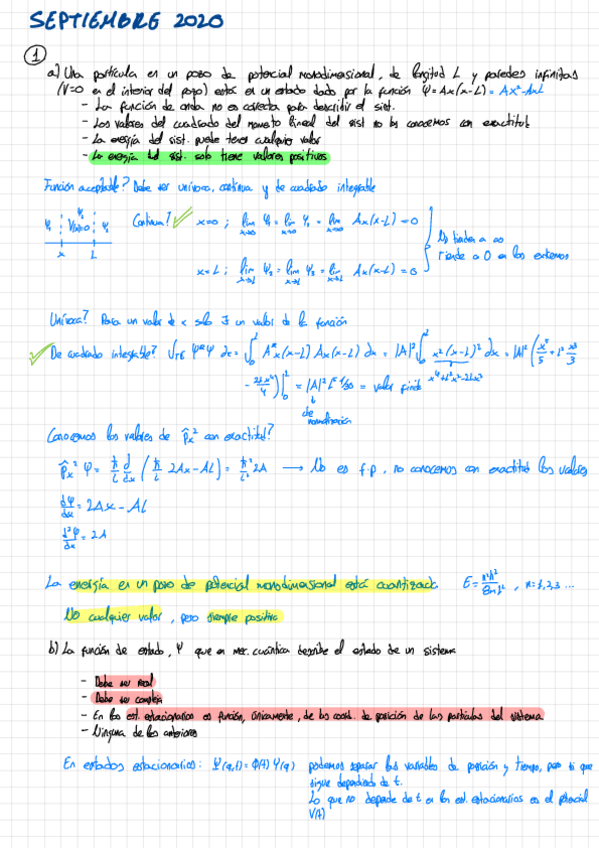 SEPTIEMBRE 2020
1
a) Una partícula en un pozo de potencial monodimensional, de longitud L y paredes infinitas
(V=0 en el interior del pozo) está en un estado dado por la función Ψ = Ax(x-L) = AX²-AxL
- La función de onda no es correcta para describir el sist.
- Los valores del cuadrado del momento lineal del sist no los conocemos con exactitud
- La energía del sist. puede tener cualquier valor
- La energía del sist. solo tiene valores positivos
Función aceptable? Debe ser unívoca, continua y de cuadrado integrable
Continua? x=0 ; lim Ψ₁ = lim Ψ₂ = lim Ax(x-L) = 0
x→0 x→0 x→0
No tiende a ∞
Tiende a 0 en los extremos
x L
x=L ; lim Ψ₂ = lim Ψ₃ = lim Ax(x-L) = 0
x→L x→L x→L
Unívoca? Para un valor de x solo ∃ un valor de la función
De cuadrado integrable? ∫ Ψ*Ψ dτ = ∫₀ᴸ A*x(x-L) Ax(x-L) dx = |A|² ∫₀ᴸ x²(x-L)² dx = |A|² (x⁵/5 + L² x³/3
x⁴+L²x²-2Lx³
- 2Lx⁴/4)|₀ᴸ = |A|² L⁵ 1/30 = valor finito
cte
de
normalización
Conocemos los valores de p̂ₓ² con exactitud?
p̂ₓ² Ψ = ħ/i d/dx (ħ/i 2Ax - AL) = ħ²/i² 2A → No es f.p, no conocemos con exactitud los valores
dΨ/dx = 2Ax - AL
d²Ψ/dx = 2A
La energía en un pozo de potencial monodimensional está cuantizada E = n²h²/8mL² , n=1,2,3 ...
No cualquier valor, pero siempre positiva
b) La función de estado, Ψ que en mec. cuántica describe el estado de un sistema
- Debe ser real
- Debe ser compleja
- En los est. estacionarios es función, únicamente, de las coord. de posición de las partículas del sistema
- Ninguna de las anteriores
En estados estacionarios: Ψ(q,t) = ϕ(t) Ψ(q) podemos separar las variables de posición y tiempo, pero sí que
sigue dependiendo de t.
Lo que no depende de t en los est. estacionarios es el potencial
V(t)